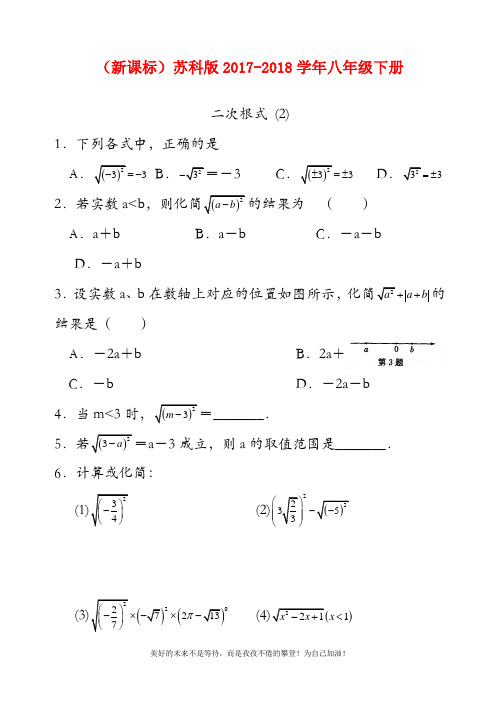 （新课标）苏科版2017-2018学年八年级下册
二次根式 (2)
1．下列各式中，正确的是
A．√(−3)² = −3 B．−√3²＝－3 C．√(±3)² = ±3 D．√3² = ±3
2．若实数a<b，则化简√(a−b)²的结果为 （ ）
A．a＋b B．a－b C．－a－b
D．－a＋b
3．设实数a、b在数轴上对应的位置如图所示，化简√a² + |a+b|的
结果是（ ）
A．－2a＋b B．2a＋
a 0 b
第3题
C．－b D．－2a－b
4．当m<3时，√(m−3)²＝_______．
5．若√(3−a)²＝a－3成立，则a的取值范围是_______．
6．计算或化简：
(1)√(−3/4)² (2)(3√(2/3))² − √(−5)²
(3)√(−2/7)² × (−√7)² × (2π−√13)⁰ (4)√(x²−2x+1)(x<1)
美好的未来不是等待，而是孜孜不倦的攀登！为自己加油！